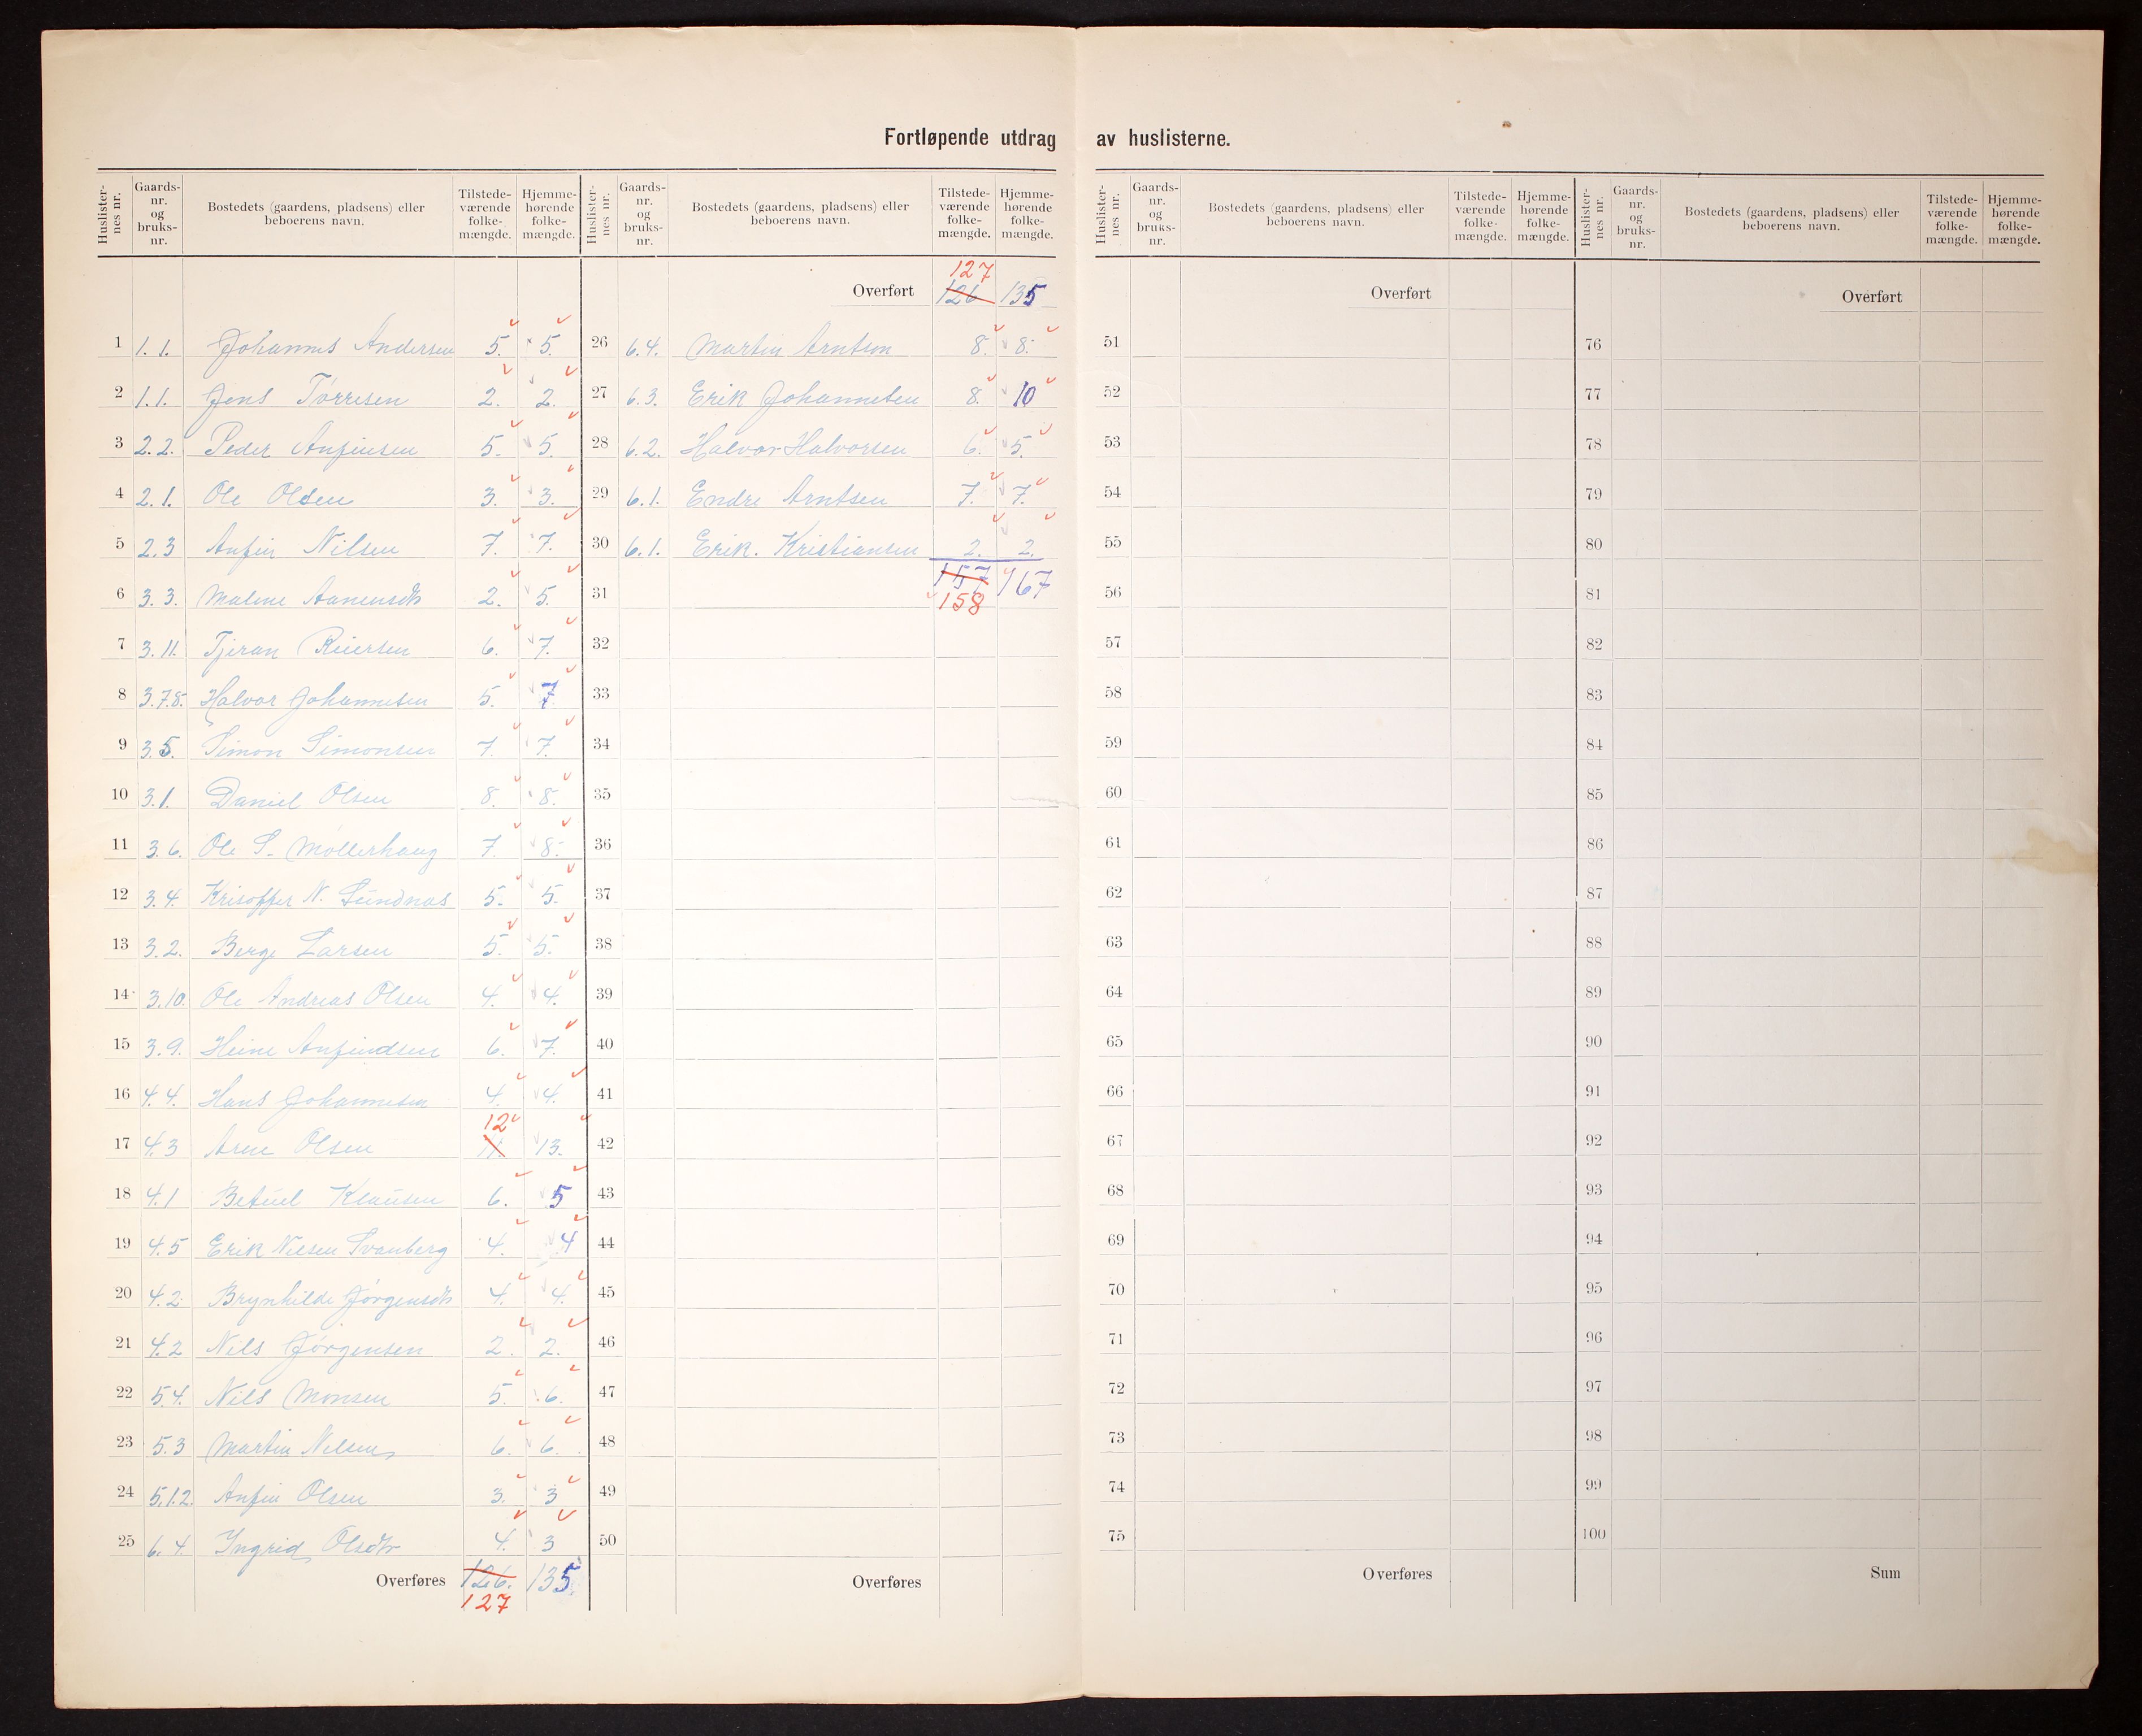 Fortløpende utdrag av huslisterne.
Huslister-nes nr. Gaards-nr. og bruks-nr. Bostedets (gaardens, pladsens) eller beboerens navn. Tilstede-værende folke-mængde. Hjemme-hørende folke-mængde.
1 1.1. Johannes Andersen 5. 5.
2 1.1. Jens Tørresen 2. 2.
3 2.2. Peder Anfinsen 5. 5.
4 2.1. Ole Olsen 3. 3.
5 2.3 Anfin Nilsen 7. 7.
6 3.3. Malene Aanensdtr 2. 5.
7 3.11. Tjeran Reiersen 6. 7.
8 3.7.8. Halvor Johannesen 5. 7
9 3.5. Simon Simonsen 7. 7.
10 3.1. Daniel Olsen 8. 8.
11 3.6. Ole S. Møllerhaug 7. 8.
12 3.4. Krisoffer N. Sundnas 5. 5.
13 3.2. Berge Larsen 5. 5.
14 3.10. Ole Andreas Olsen 4. 4.
15 3.9. Heine Anfindsen 6. 7.
16 4.4. Hans Johannesen 4. 4.
12
17 4.3 Arne Olsen 11 13.
18 4.1 Betuel Klausen 6. 5
19 4.5 Erik Nilsen Svanberg 4. 4
20 4.2 Brynhilde Jørgensdtr 4. 4.
21 4.2 Nils Jørgensen 2. 2.
22 5.4. Nils Monsen 5. 6.
23 5.3 Martin Nelsen 6. 6.
24 5.1.2. Anfin Olsen 3. 3
25 6.4. Ingrid Olsdtr 4. 3
Overføres 126. 135.
127
Huslister-nes nr. Gaards-nr. og bruks-nr. Bostedets (gaardens, pladsens) eller beboerens navn. Tilstede-værende folke-mængde. Hjemme-hørende folke-mængde.
127
Overført 126 135
26 6.4. Martin Arntsen 8. 8.
27 6.3. Erik Johannesen 8. 10
28 6.2. Halvor Halvorsen 6. 5.
29 6.1. Endre Arntsen 7. 7.
30 6.1. Erik. Kristiansen 2. 2.
31 157 167
158
32
33
34
35
36
37
38
39
40
41
42
43
44
45
46
47
48
49
50
Overføres
Huslister-nes nr. Gaards-nr. og bruks-nr. Bostedets (gaardens, pladsens) eller beboerens navn. Tilstede-værende folke-mængde. Hjemme-hørende folke-mængde.
Overført
51
52
53
54
55
56
57
58
59
60
61
62
63
64
65
66
67
68
69
70
71
72
73
74
75
Overføres
Huslister-nes nr. Gaards-nr. og bruks-nr. Bostedets (gaardens, pladsens) eller beboerens navn. Tilstede-værende folke-mængde. Hjemme-hørende folke-mængde.
Overført
76
77
78
79
80
81
82
83
84
85
86
87
88
89
90
91
92
93
94
95
96
97
98
99
100
Sum